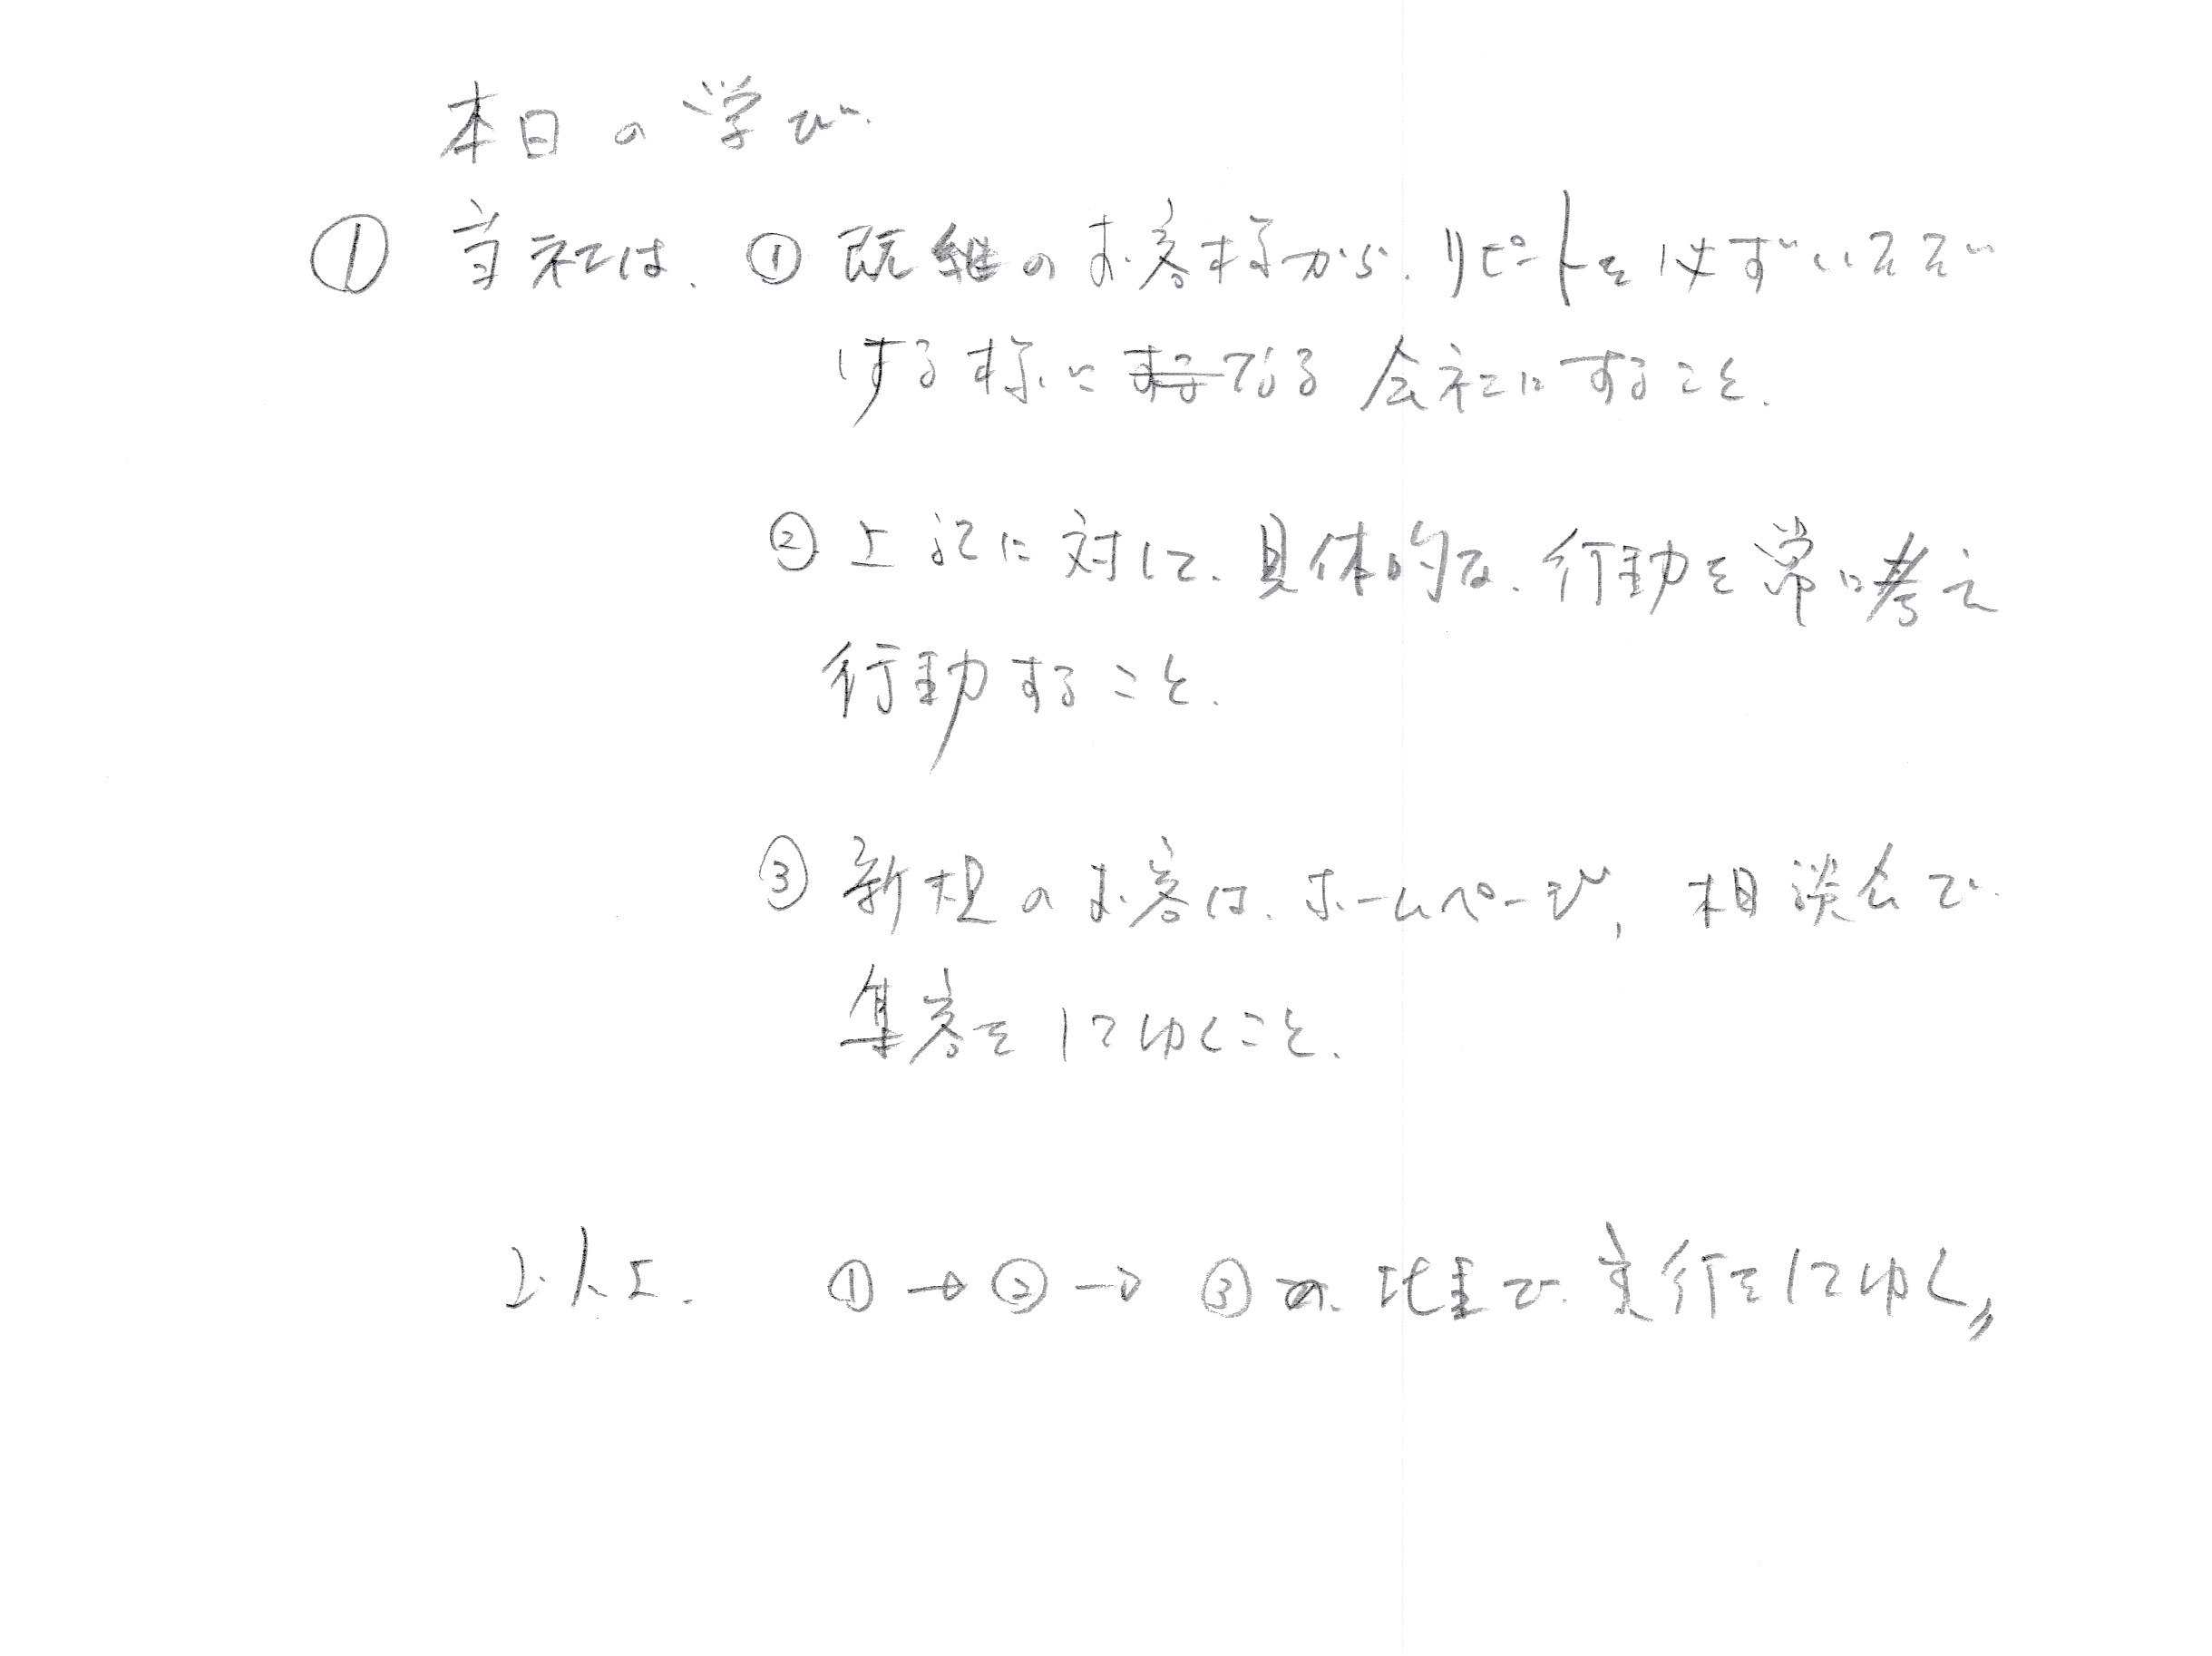 本日の学び
① 当社は、① 既継のお客様から、リピートを必ずいただ
ける様になる会社にすること。
② 上記に対して、具体的な、行動を常に考え
行動すること。
③ 新規のお客は、ホームページ、相談会で
集客をしてゆくこと。
以上、 ①→②→③の、比重で実行をしてゆく〃